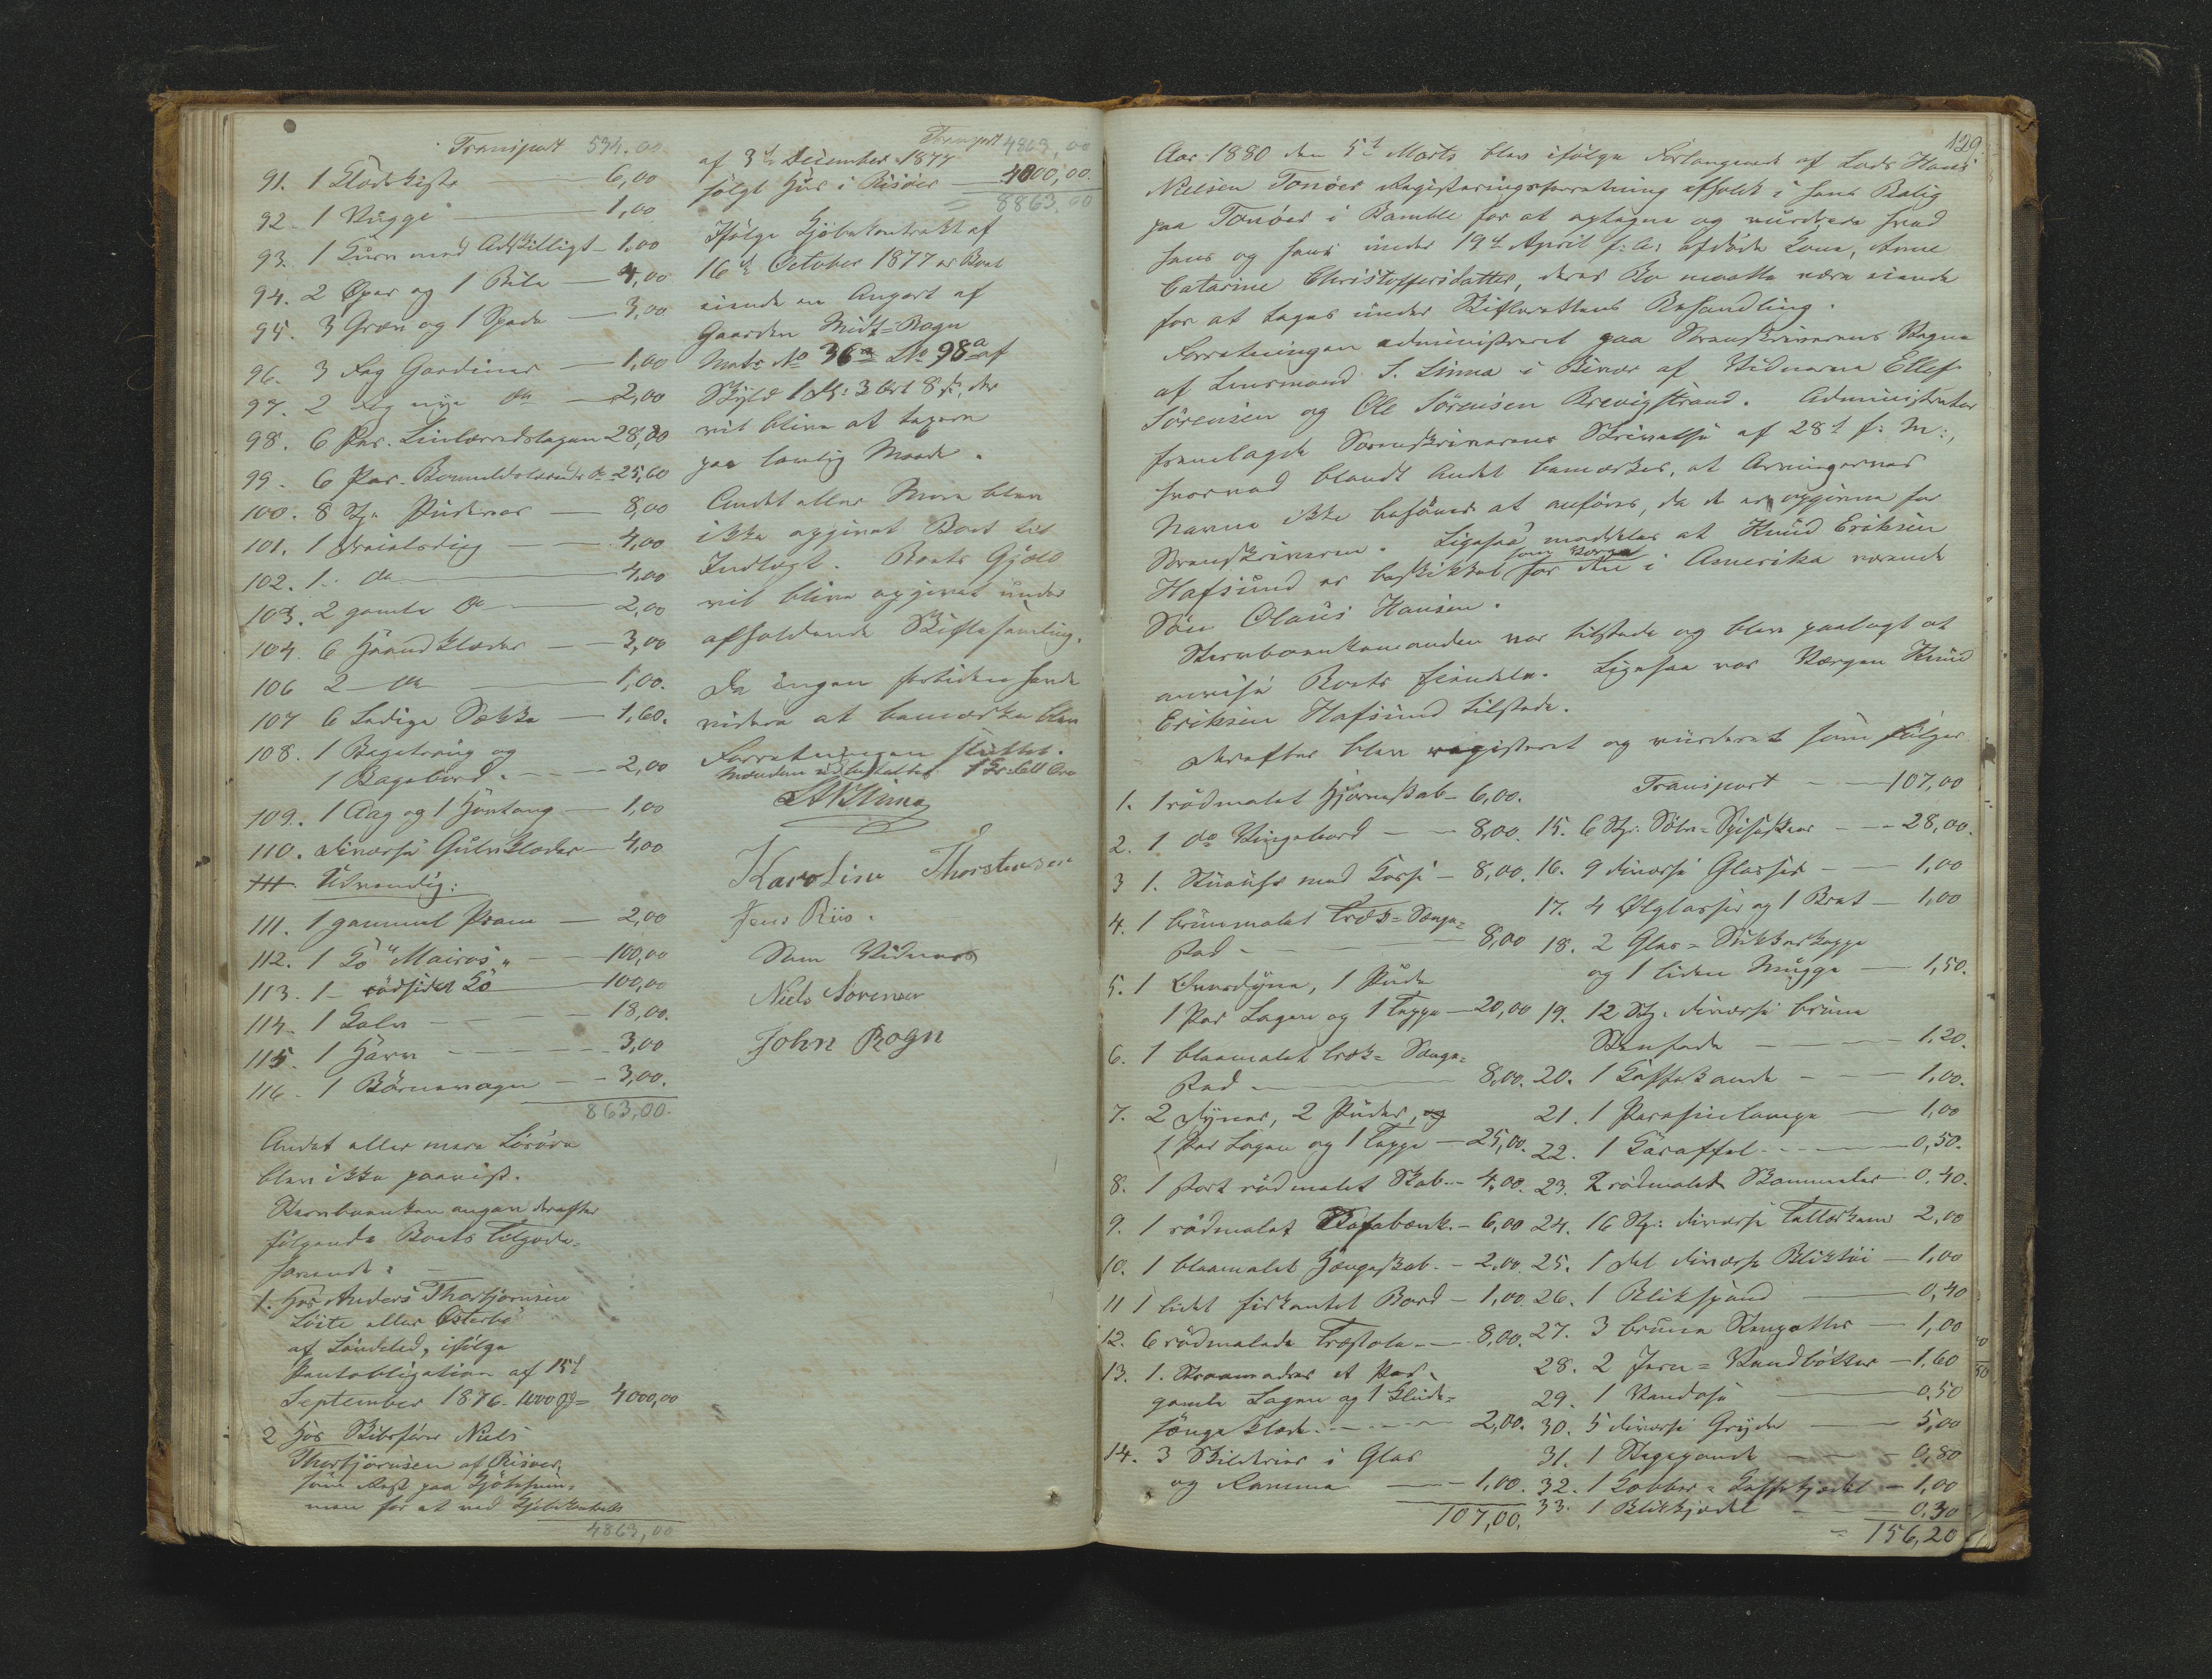 Transport 534.00
91. 1 Klædekiste 6,00
92. 1 Vugge 1,00
93. 1 Kurv med Adskilligt 1,00
94. 2 Øxer og 1 Bile 4,00
95. 3 Græv og 1 Spade 3,00
96. 3 Fag Gardiner 1,00
97. 2 Fag nye do 2,00
98. 6 Par Linlærredslagen 28,00
99. 6 Par Bomuldslærreds do 25,60
100. 8 Stk. Pudevar 8,00
101. 1 Dreielsdug 4,00
102. 1 do 4,00
103. 2 gamle do 2,00
104. 6 Haandklæder 3,00
106 2 do 1,00.
107 6 Ledige Sække 1,60.
108. 1 Bagetroug og
1 Bagebord. 2,00
109. 1 Aag og 1 1,00
110. diverse Gulvklæder 4,00
111. Udvendig:
111. 1 gammel Pram 2,00
112. 1 Ko "Mairos" 100,00
113. 1 rødsidet Ko 100,00
114. 1 Kalv 18,00.
115. 1 Harv 3,00
116. 1 Børnevogn 3,00.
863,00.
Andet eller mere Løsøre
blev ikke paavist.
Stervboenken angav derefter
følgende Boets Tilgode-
havende:
1. Hos Anders Thorbjørnsen
eller Østerbø
af Søndeled, ifølge
Pantobligation af 15d
September 1876. 1000 Spd = 4000,00
2 Hos Skibsfører Niels
Thorbjørnsen af Risøer,
som Rest paa Kjøbesum-
men for et ved Kjøbekontrakt
4863,00
Transport 4863,00
af 3d December 1877
solgt Huus i Risøer 4000,00.
= 8863,00
Ifølge Kjøbekontrakt af
16d October 1877 er Boet
eiende en Anpart af
Gaarden Midt-Rogn
Matr No 36 LNo 98a af
Skyld 1 Ort 8 s, der
vil blive at taxere
paa lovlig Maade.
Andet eller Mere blev
ikke opgivet Boet til
Indtægt. Boets Gjæld
vil blive opgivet under
afholdende Skiftesamling.
Da Ingen forøvrigt havde
videre at bemærke blev
Forretningen sluttet.
Karoline Thorstensen
Jens Riis.
Som Vidner
Niels Sørensen
John Rogn
129
Aar 1880 den 5d Marts blev ifølge Forlangende af Lods Hans
Nielsen Tonøer Registreringsforretning afholdt i hans Bolig
paa Tonøer i Bamble for at optegne og vurdere hvad
hans og hans under 19d April f: A: afdøde Kone, Anne
Catarine Christoffersdatter, deres Bo maatte være eiende
for at tages under Skifterettens Behandling.
Forretningen administreret paa Sorenskriverens Vegne
af Lensmand S. Linna i Bivær af Vidnerne Ellef
Sørensen og Ole Sørensen Brevigstrand. Administrator
fremlagde Sorenskriverens Skrivelse af 28d f: M:,
hvorved blandt Andet bemærkes, at Arvingernes
Navne ikke behøver at anføres, da de er opgivne for
Sorenskriveren. Ligesaa meddeles at Knud Eriksen
Hafsund er beskikket som Værge for den i Amerika værende
Søn Olaus Hansen.
Stervboenkemanden var tilstede og blev paalagt at
anvise Boets Eiendele. Ligesaa var Værgen Knud
Eriksen Hafsund tilstede.
Derefter blev registeret og vurderet som følger
1. 1 rødmalet Hjørneskab 6,00.
2. 1 do Vingebord 8,00.
3 1. Stueuhr med Kasse 8,00.
4. 1 brunmalet Træk-Senge-
Sted 8,00
5. 1 Underdyne, 1 Pude
1 Par Lagen og 1 Teppe 20,00
6. 1 blaamalet Træk-Senge-
Sted 8,00.
7. 2 Dyner, 2 Puder, og
1 Par Lagen og 1 Teppe 25,00.
8. 1 stort rødmalet Skab 4,00.
9. 1 rødmalet Sofabænk 6,00
10. 1 blaamalet Hængeskab 2,00.
11 1 lidet firkantet Bord 1,00.
12. 6 rødmalede Træstole 8,00.
13. 1. Straamadras et Par
gamle Lagen og 1 Klude-
sengeklæde 2,00.
14. 3 Skilderier i Glas
og Ramme 1,00.
107,00.
Transport 107,00
15. 6 Stk. Sølv-Spiseskeer 28,00.
16. 9 diverse Glasser 1,00
17. 4 Ølglasser og 1 Bret 1,00
18. 2 Glas-Sukkerkoppe
og 1 liden Mugge 1,50.
19. 12 Stk. diverse brune
Stenfade 1.20.
20. 1 Kaffekande 1,00.
21. 1 Parafinlampe 1,00
22. 1 Karaffel 0,50.
23. 2 rødmalede Skammeler 0.40.
24. 16 Stk. diverse Tallerkener 2,00
25. 1 Del diverse Bliktøi 1,00
26. 1 Blikspand 0,40
27. 3 brune 1,00
28. 2 Jern-Vandbøtter 1,60
29. 1 Vandøse 0.50
30. 5 diverse Gryder 5,00
31. 1 Stegepande 0,80
32. 1 Kobber-Kaffekjedel 1,00
33. 1 Blikkjedel 0.30
= 156,20